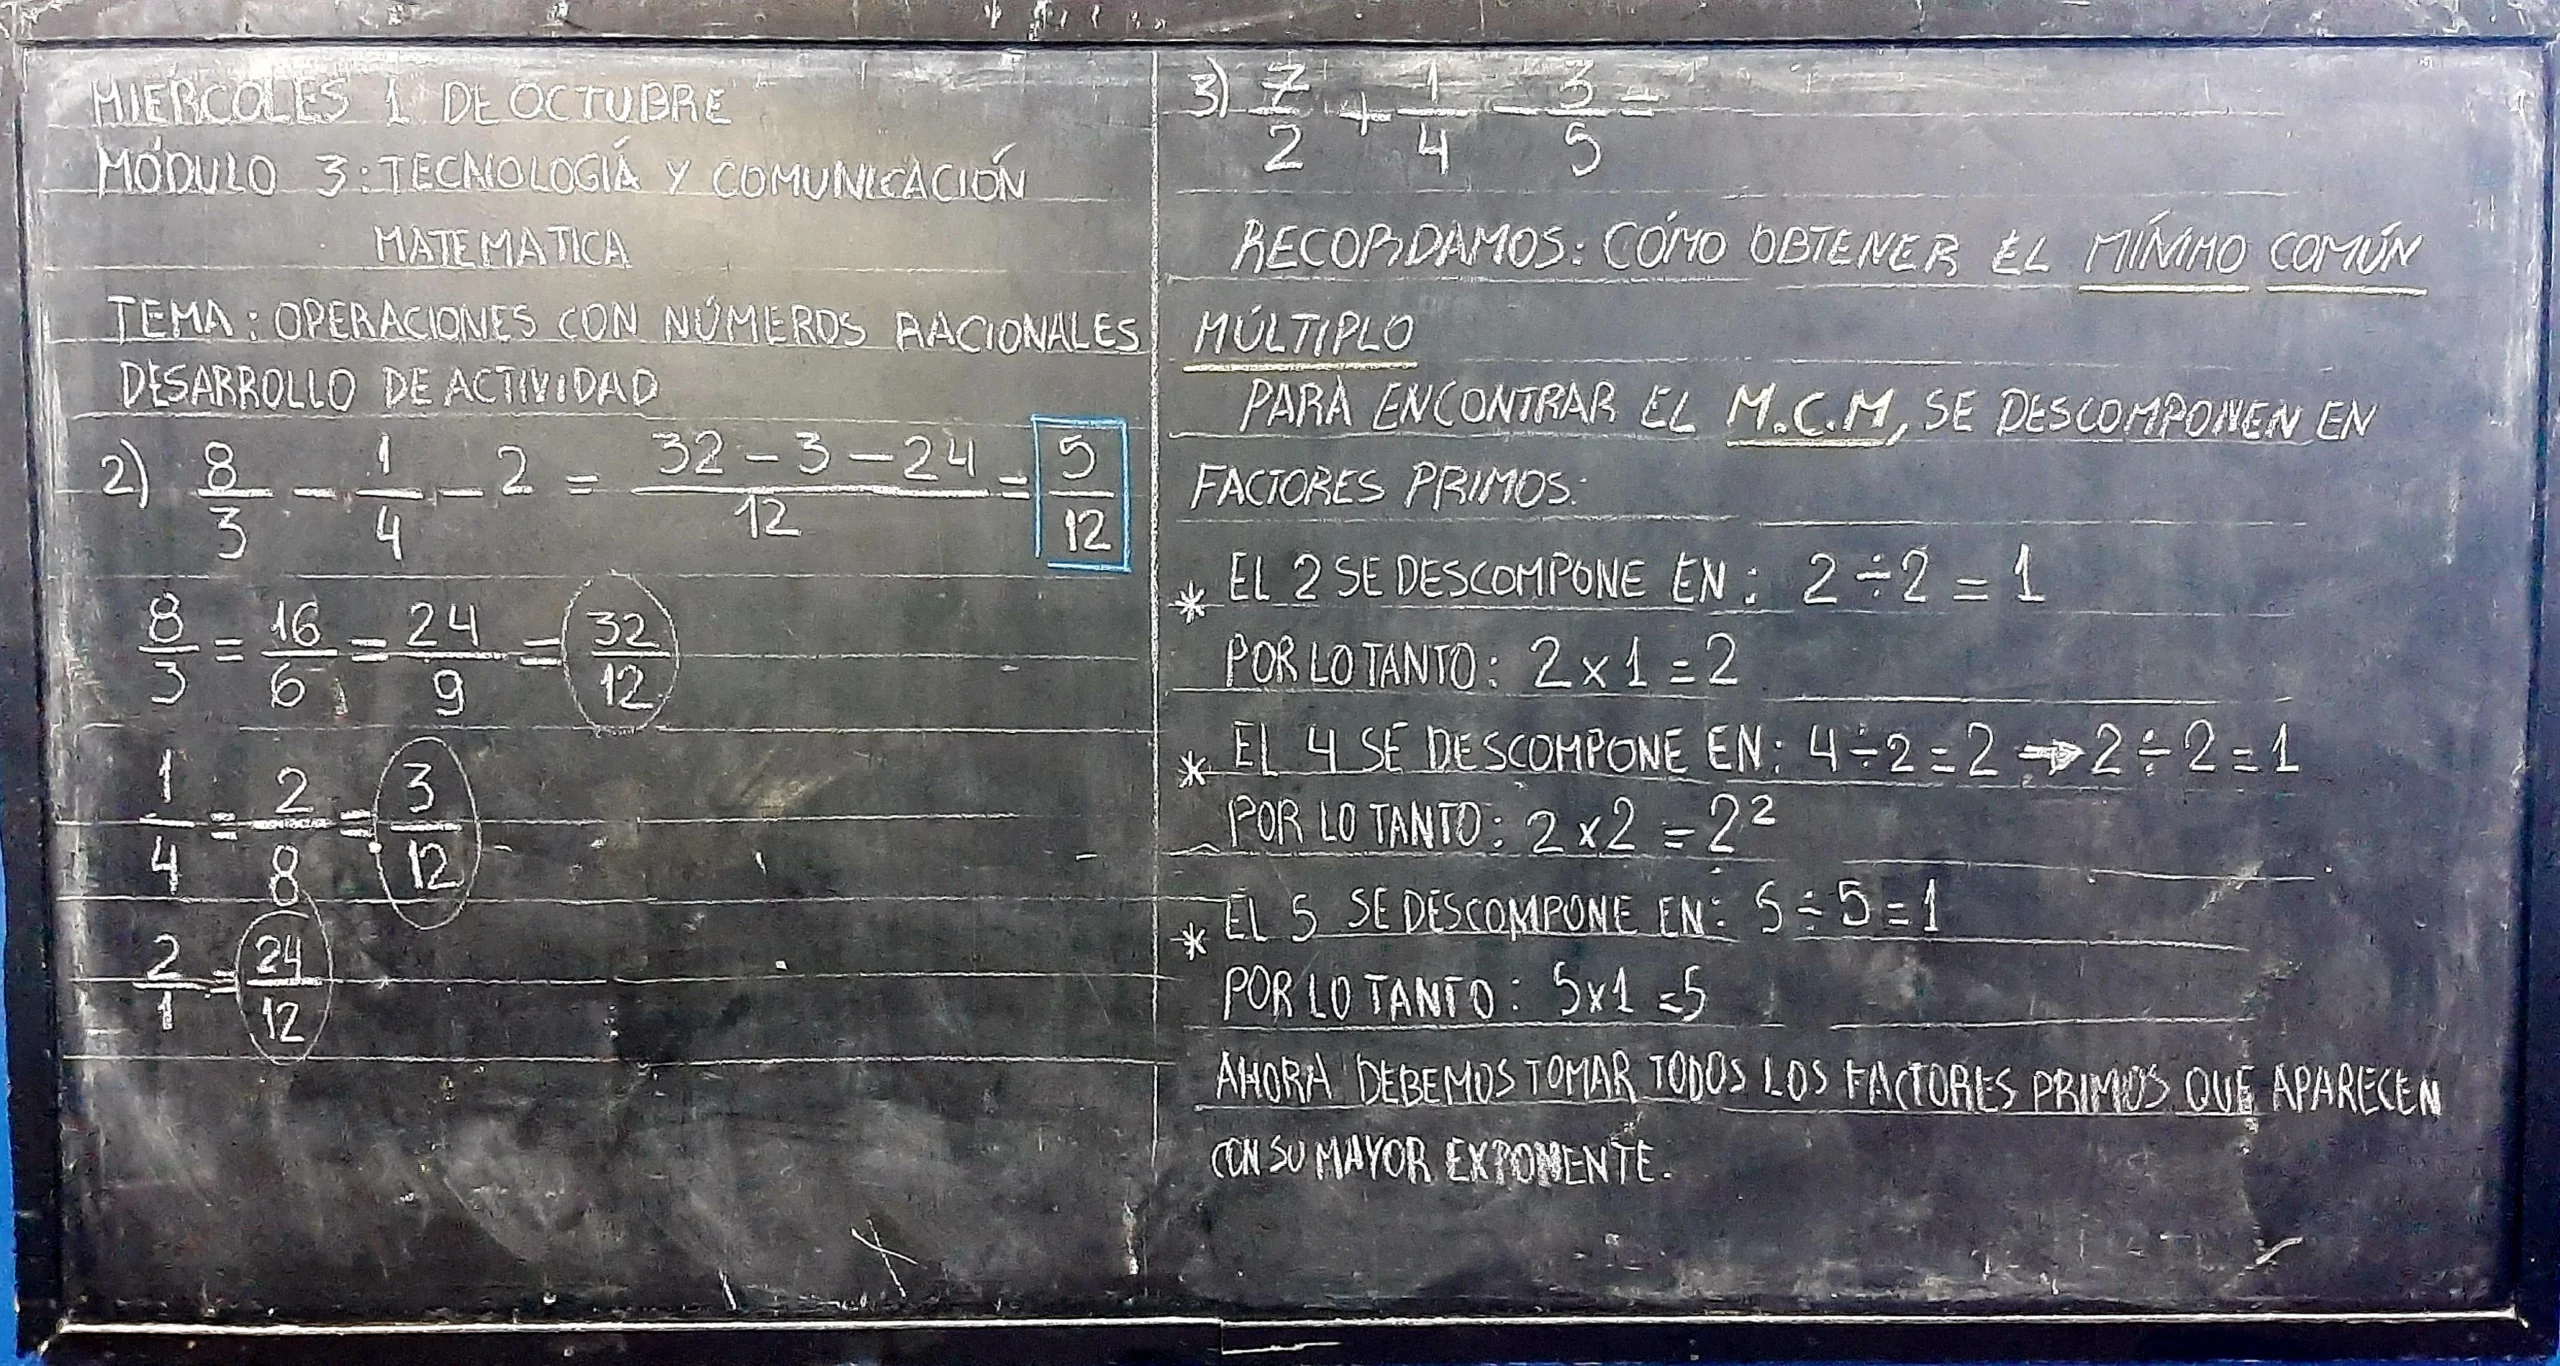 MIÉRCOLES 1 DE OCTUBRE
MÓDULO 3: TECNOLOGÍA Y COMUNICACIÓN
MATEMATICA
TEMA: OPERACIONES CON NÚMEROS RACIONALES
DESARROLLO DE ACTIVIDAD
2) 8/3 - 1/4 - 2 = (32 - 3 - 24)/12 = 5/12
8/3 = 16/6 = 24/9 = 32/12
1/4 = 2/8 = 3/12
2/1 = 24/12
3) 7/2 + 1/4 - 3/5 =
RECORDAMOS: CÓMO OBTENER EL MÍNIMO COMÚN
MÚLTIPLO
PARA ENCONTRAR EL M.C.M, SE DESCOMPONEN EN
FACTORES PRIMOS:
* EL 2 SE DESCOMPONE EN: 2 ÷ 2 = 1
POR LO TANTO: 2 x 1 = 2
* EL 4 SE DESCOMPONE EN: 4 ÷ 2 = 2 → 2 ÷ 2 = 1
POR LO TANTO: 2 x 2 = 2²
* EL 5 SE DESCOMPONE EN: 5 ÷ 5 = 1
POR LO TANTO: 5 x 1 = 5
AHORA DEBEMOS TOMAR TODOS LOS FACTORES PRIMOS QUE APARECEN
CON SU MAYOR EXPONENTE.